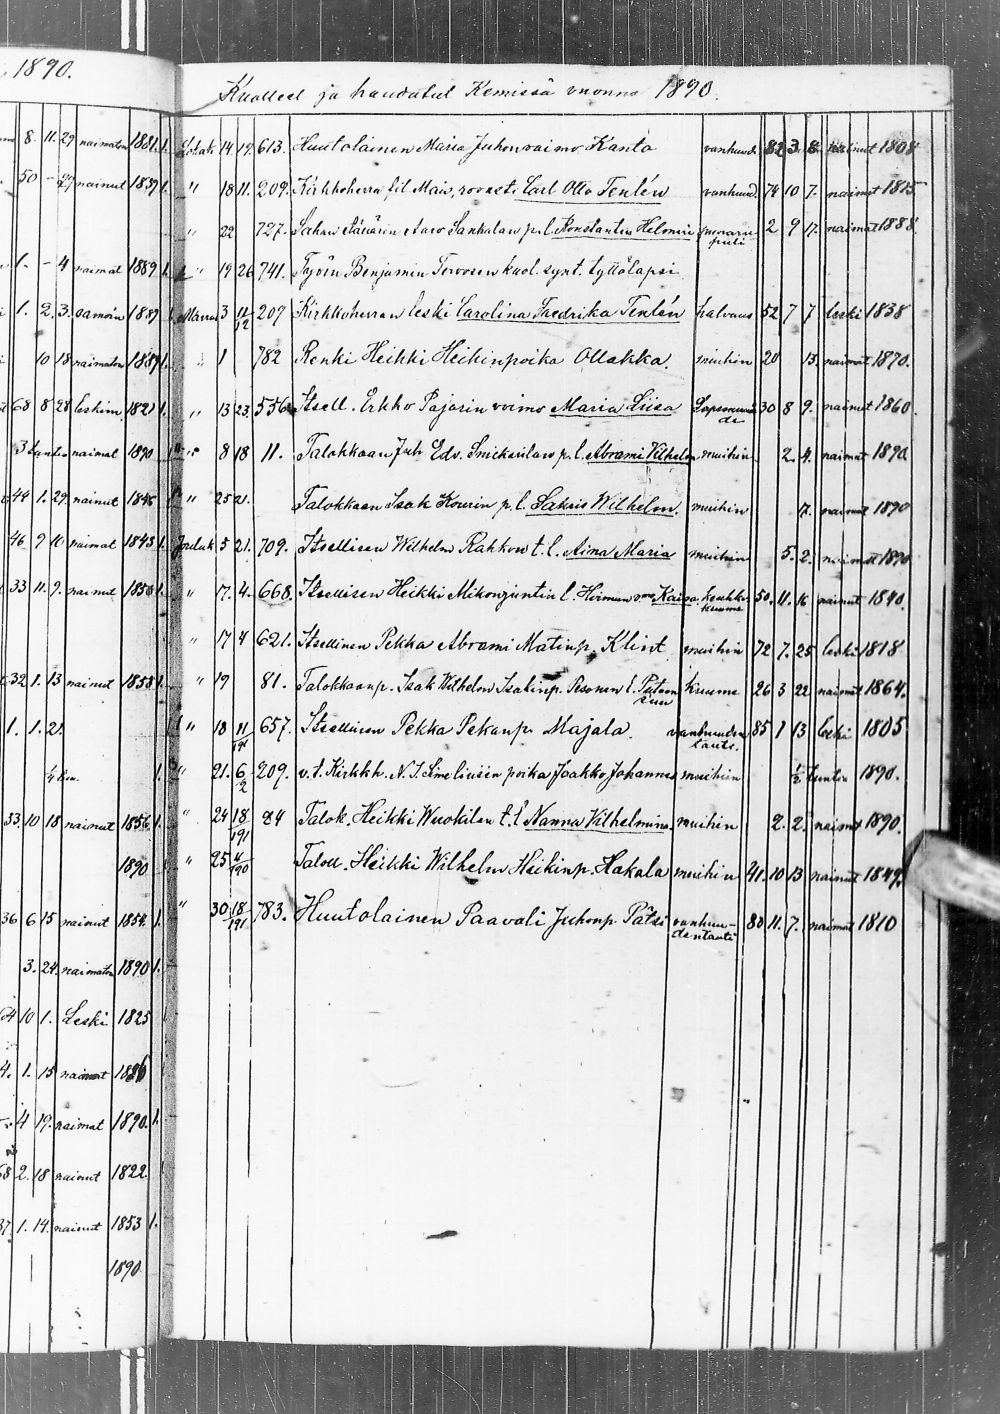 1890.
Kuolleet ja haudatut Kemissä vuonna 1890.
8. 11. 29 naimaton 1881. 1.
50 - 29 naimut 1839 1.
1. - 4 naimat 1889 1.
1. 2. 3. samoin 1889 1.
10 18 naimaton 1889 1.
68 8 28 leskim 1821 1.
3 tuntia naimat 1890
44 1. 29. naimut 1845
46 9 10 naimat 1843 1.
33 11. 9. naimut 1856 1.
32 1. 13 naimut 1858 1.
1. 1. 21.
33. 10 18 naimut 1856 1.
1890
36 6 15 naimut 1854 1.
3. 24. naimaton 1890 1.
64 10 1. Leski 1825
4. 1. 15 naimat 1886
4 19. naimat 1890. 1.
68 2. 18 naimut 1822
37. 1. 14. naimut 1853 1.
1890.
Lokak 14. 19. 613. Huutolainen Maria Juhonvaimo Kanto vanhuud. 82 3. 8. naimut 1808
" 18 11. 209. Kirkkoherra fil Mais, rovasti Carl Otto Tenlén vanhuud. 74 10 7. naimat 1815
" 22 727. Sahan Aaro Sankalan p. l. Konstantin Helmeri 2 9 17. naimat 1888
" 19 26 741. Työm Benjamin Tervosen kuol. synt. tyttölapsi
Marras 3 11/12 207 Kirkkoherran leski Carolina Fredrika Tenlén halvaus 52 7 7 leski 1838
" 1 782 Renki Heikki Heikinpoika Ollakka. muihin 20 13. naimat 1870.
" 13 23. 556. Itsell. Erkko Pajarin vaimo Maria Liisa Lapsenvuode 30 8 9. naimut 1860.
" 8 18 11. Talokkaan Juh Edv. Smickarilan p. l. Abrami Vilhelm muihin 2. 4. naimat 1890.
" 25 21. Talokkaan Isak Kourin p. l. Sakris Wilhelm. muihin 7. naimat 1890
Jouluk 5 21. 709. Itsellisen Wilhelm Rahkon t. l. Aina Maria muihin 5. 2. naimat 1890
" 7. 4. 668. Itsellisen Heikki Mikonjuntin l. Hirmun vmo Kaisa keuhkokuume 50. 11. 16 naimut 1840.
" 17 4 621. Itsellinen Pekka Abrami Matinp. Klint muihin 72 7. 25 leski 1818
" 19 81. Talokkaanp. Isak Wilhelm Isakinp. Pesonen l. kuume 26 3 22 naimat 1864.
" 18 11/191 657. Itsellinen Pekka Pekanp. Majala. vanhuudentauti. 85 1 13 leski 1805
" 21. 6/2 209. v. t. Kirkkh. N. J. Simeliusen poika Jaakko Johannes muihin 1/2 tuntia 1890.
" 24 18/191 84 Talok. Heikki Wuokilan t. l. Nanna Vilhelmina muihin 2. 2. naimat 1890.
" 25 4/190 Talok. Heikki Wilhelm Heikinp. Hakala muihin 41. 10 13 naimut 1849.
" 30 18/191 783. Huutolainen Paavali Juhonp. Pätsi vanhuudentauti 80 11. 7. naimat 1810